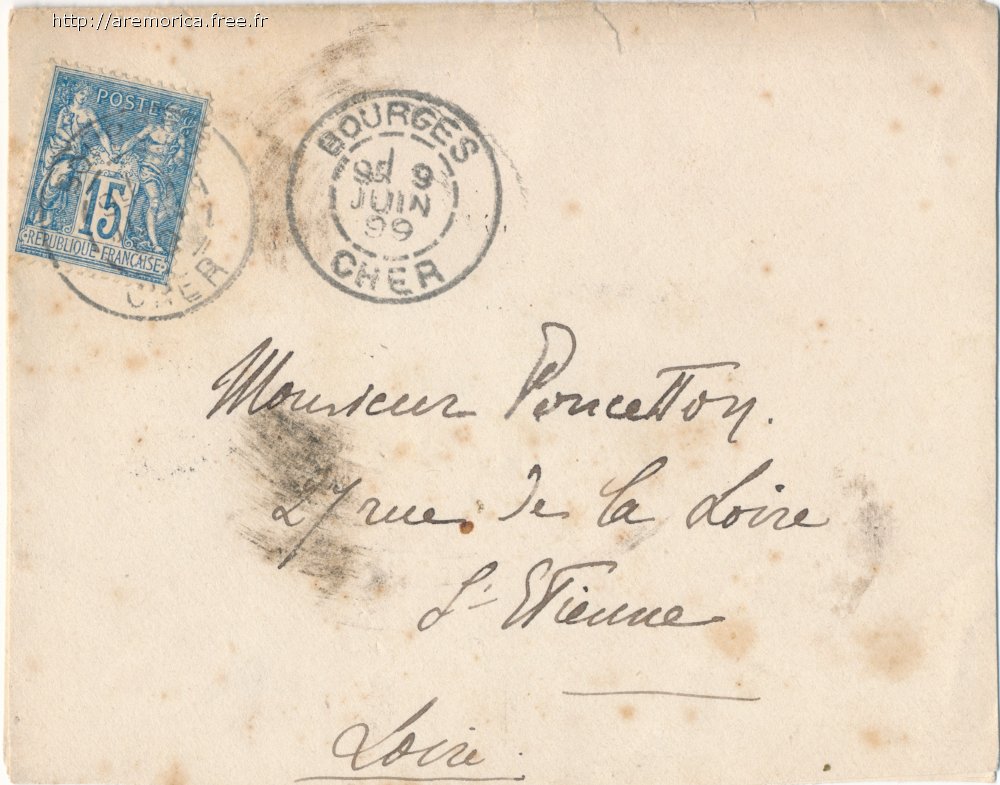 http://aremorica.free.fr
POSTES
15
RÉPUBLIQUE FRANÇAISE
CHER
BOURGES
9
JUIN
99
CHER
Monsieur Poncetton.
27 rue de la Loire
St Etienne
Loire